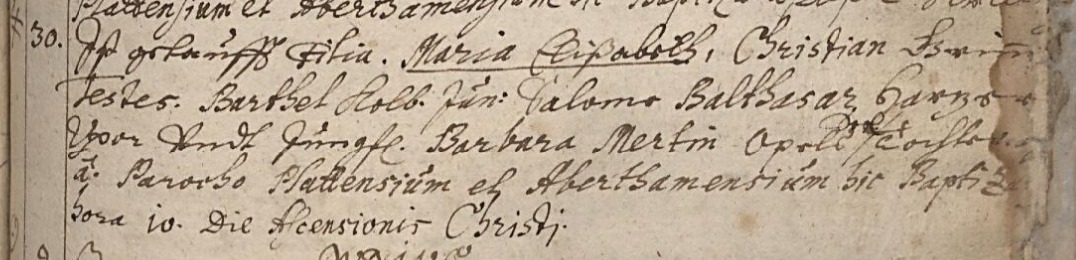 Plattensium et Aberthamensium hic
30. Ist getaufft Filia. Maria Elisabeth, Christian
Testes. Barthel Kolb. Jun: Salome Balthasar
Undt Jungfr. Barbara Mertin Opelß Tochter.
à. Parocho Plattensium et Aberthamensium hic Baptiza
hora 10. Die Ascensionis Christj.